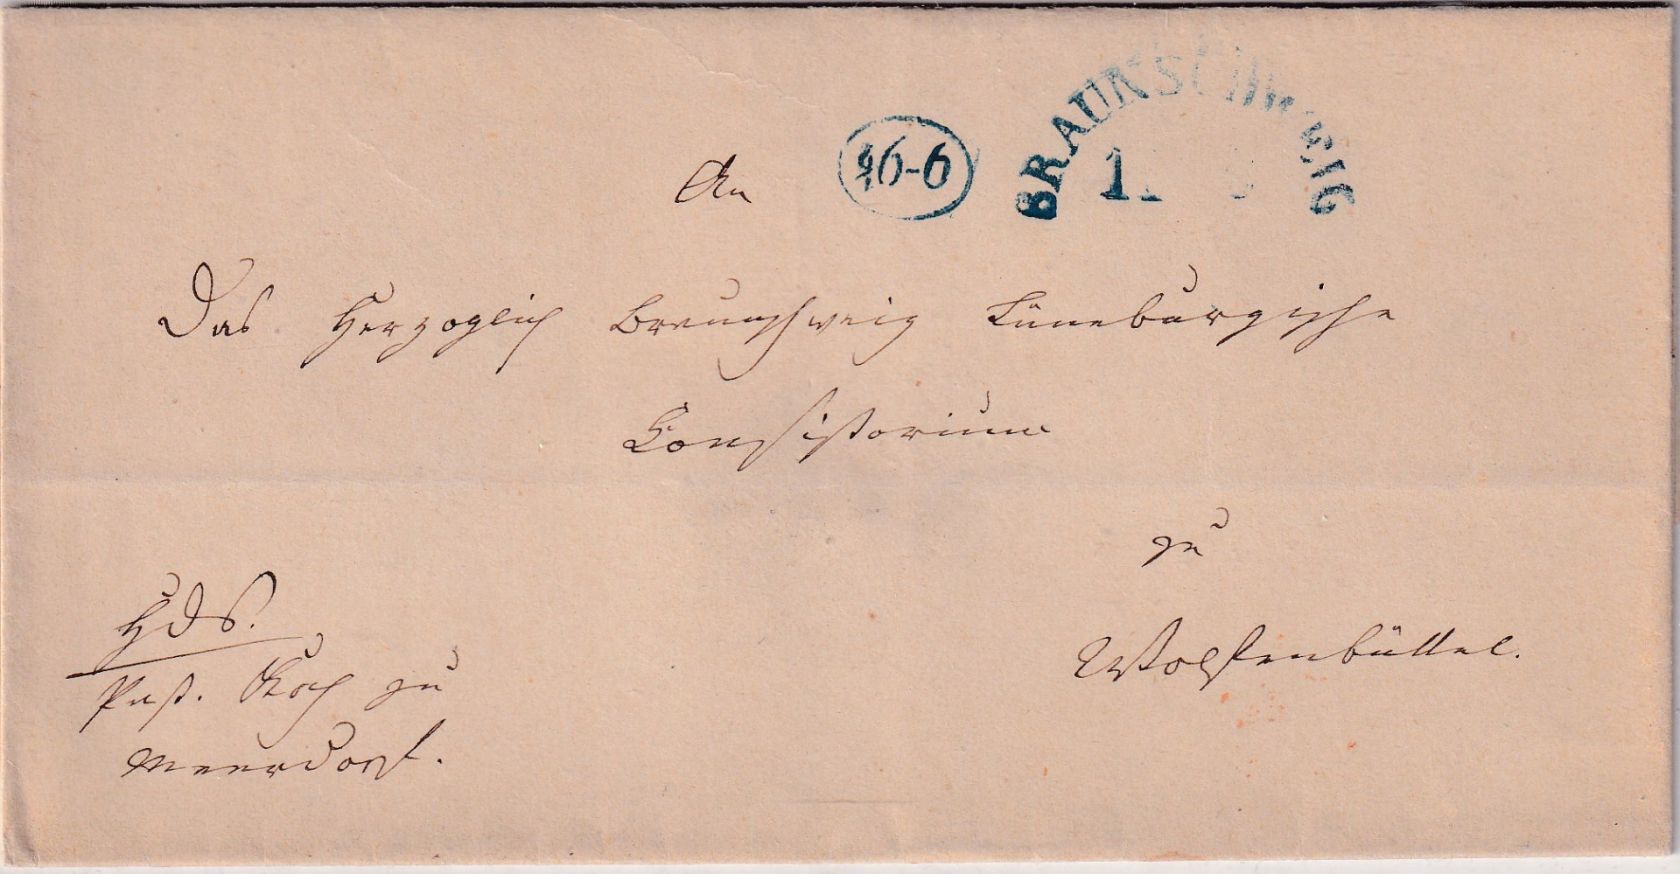 BRAUNSCHWEIG
6-6
An
Das Herzoglich Braunschweig Lüneburgische
Consistorium
zu
Wolfenbüttel.
HdS.
Past. Koch zu
Meerdorf.